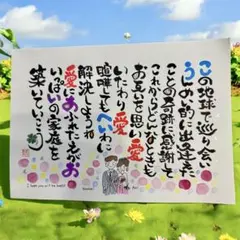 この地球で巡り会い
うんめい的に出逢えた
ことの奇跡に感謝して
これからどんなときも
お互いを思い愛
いたわり愛
喧嘩してもへいわに
解決しようね
愛にあふれたえがお
いっぱいの家庭を
築いていこう